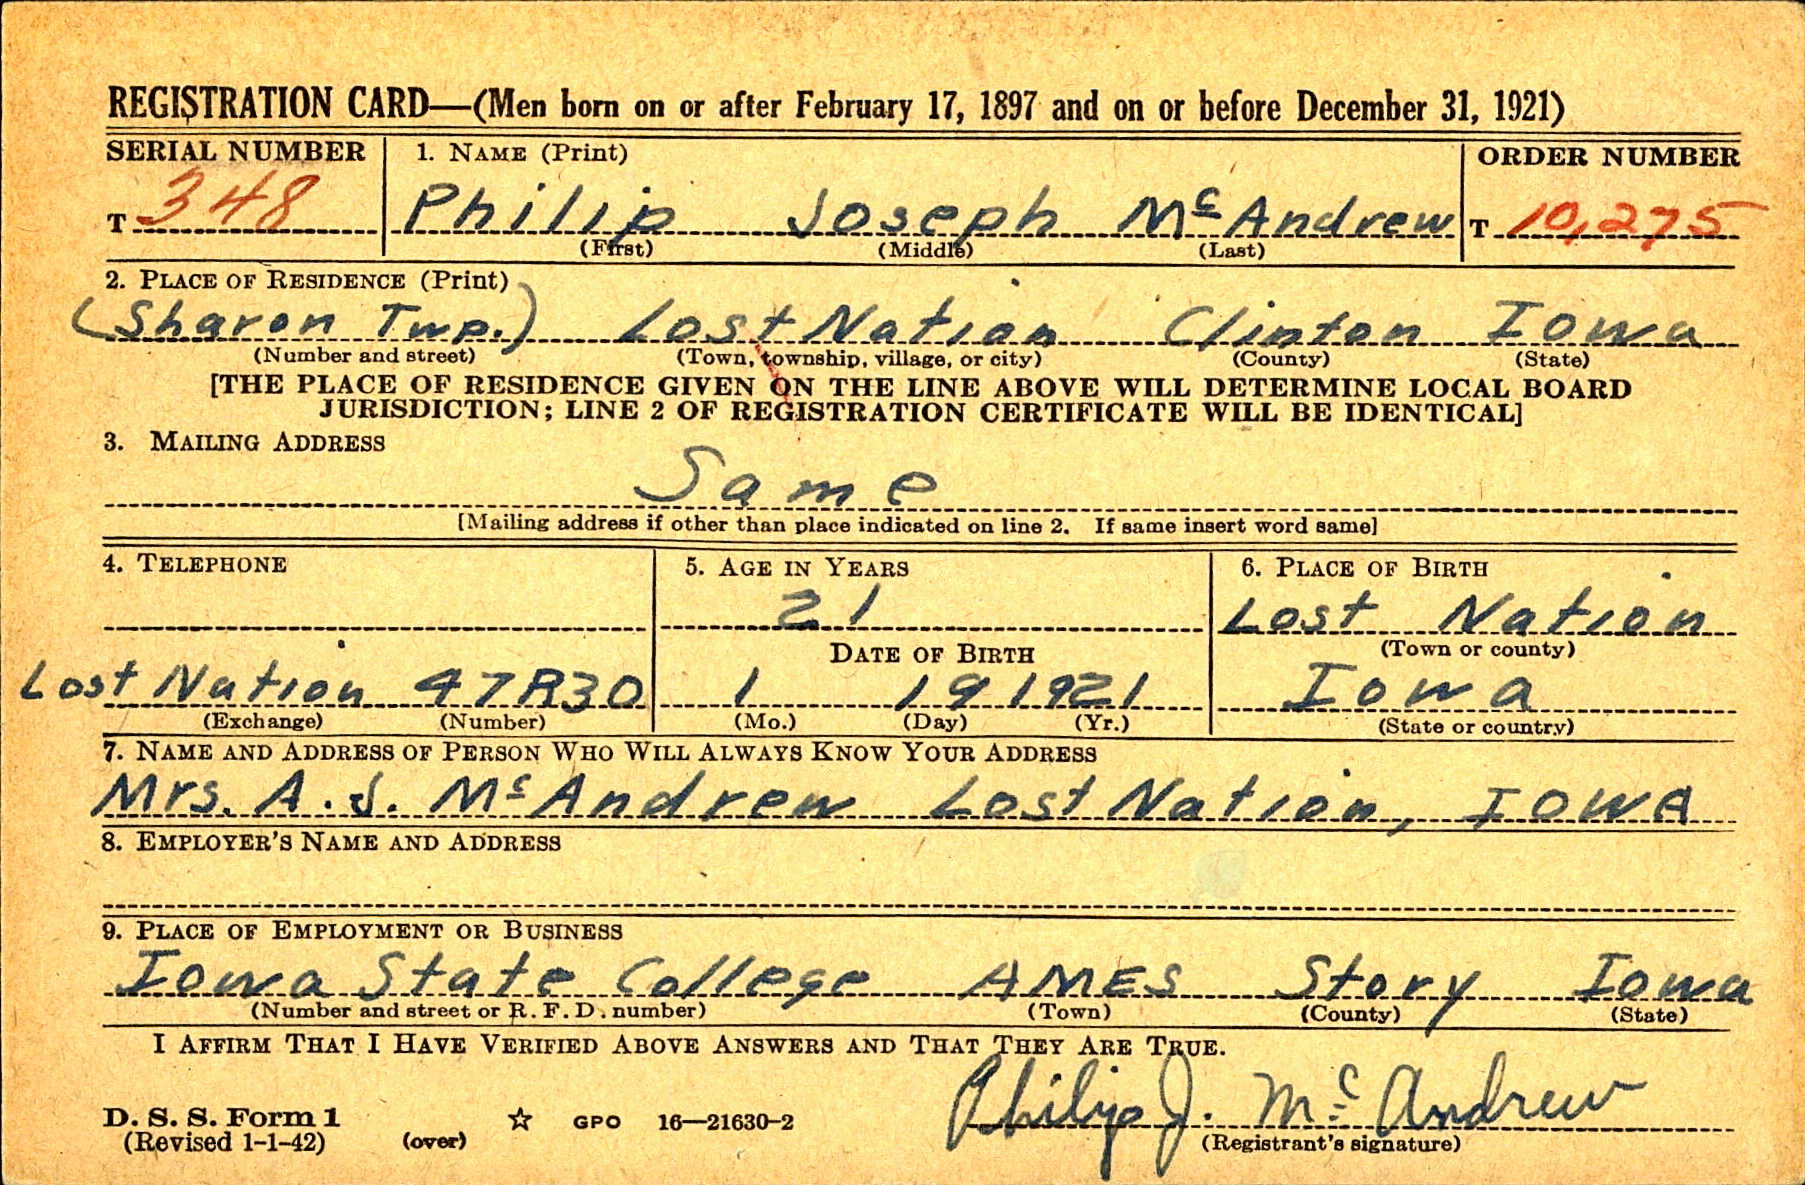 REGISTRATION CARD—(Men born on or after February 17, 1897 and on or before December 31, 1921)
SERIAL NUMBER 1. NAME (Print) ORDER NUMBER
T 348 Philip Joseph McAndrew T 10,275
(First) (Middle) (Last)
2. PLACE OF RESIDENCE (Print)
(Sharon Twp.) Lost Nation Clinton Iowa
(Number and street) (Town, township, village, or city) (County) (State)
[THE PLACE OF RESIDENCE GIVEN ON THE LINE ABOVE WILL DETERMINE LOCAL BOARD
JURISDICTION; LINE 2 OF REGISTRATION CERTIFICATE WILL BE IDENTICAL]
3. MAILING ADDRESS
Same
[Mailing address if other than place indicated on line 2. If same insert word same]
4. TELEPHONE 5. AGE IN YEARS 6. PLACE OF BIRTH
21 Lost Nation
DATE OF BIRTH (Town or county)
Lost Nation 47R30 1 19 1921 Iowa
(Exchange) (Number) (Mo.) (Day) (Yr.) (State or country)
7. NAME AND ADDRESS OF PERSON WHO WILL ALWAYS KNOW YOUR ADDRESS
Mrs. A. J. McAndrew Lost Nation, IOWA
8. EMPLOYER'S NAME AND ADDRESS
9. PLACE OF EMPLOYMENT OR BUSINESS
Iowa State College AMES Story Iowa
(Number and street or R. F. D. number) (Town) (County) (State)
I AFFIRM THAT I HAVE VERIFIED ABOVE ANSWERS AND THAT THEY ARE TRUE.
Philip J. McAndrew
D. S. S. Form 1 ☆ GPO 16—21630-2
(Revised 1-1-42) (over) (Registrant's signature)